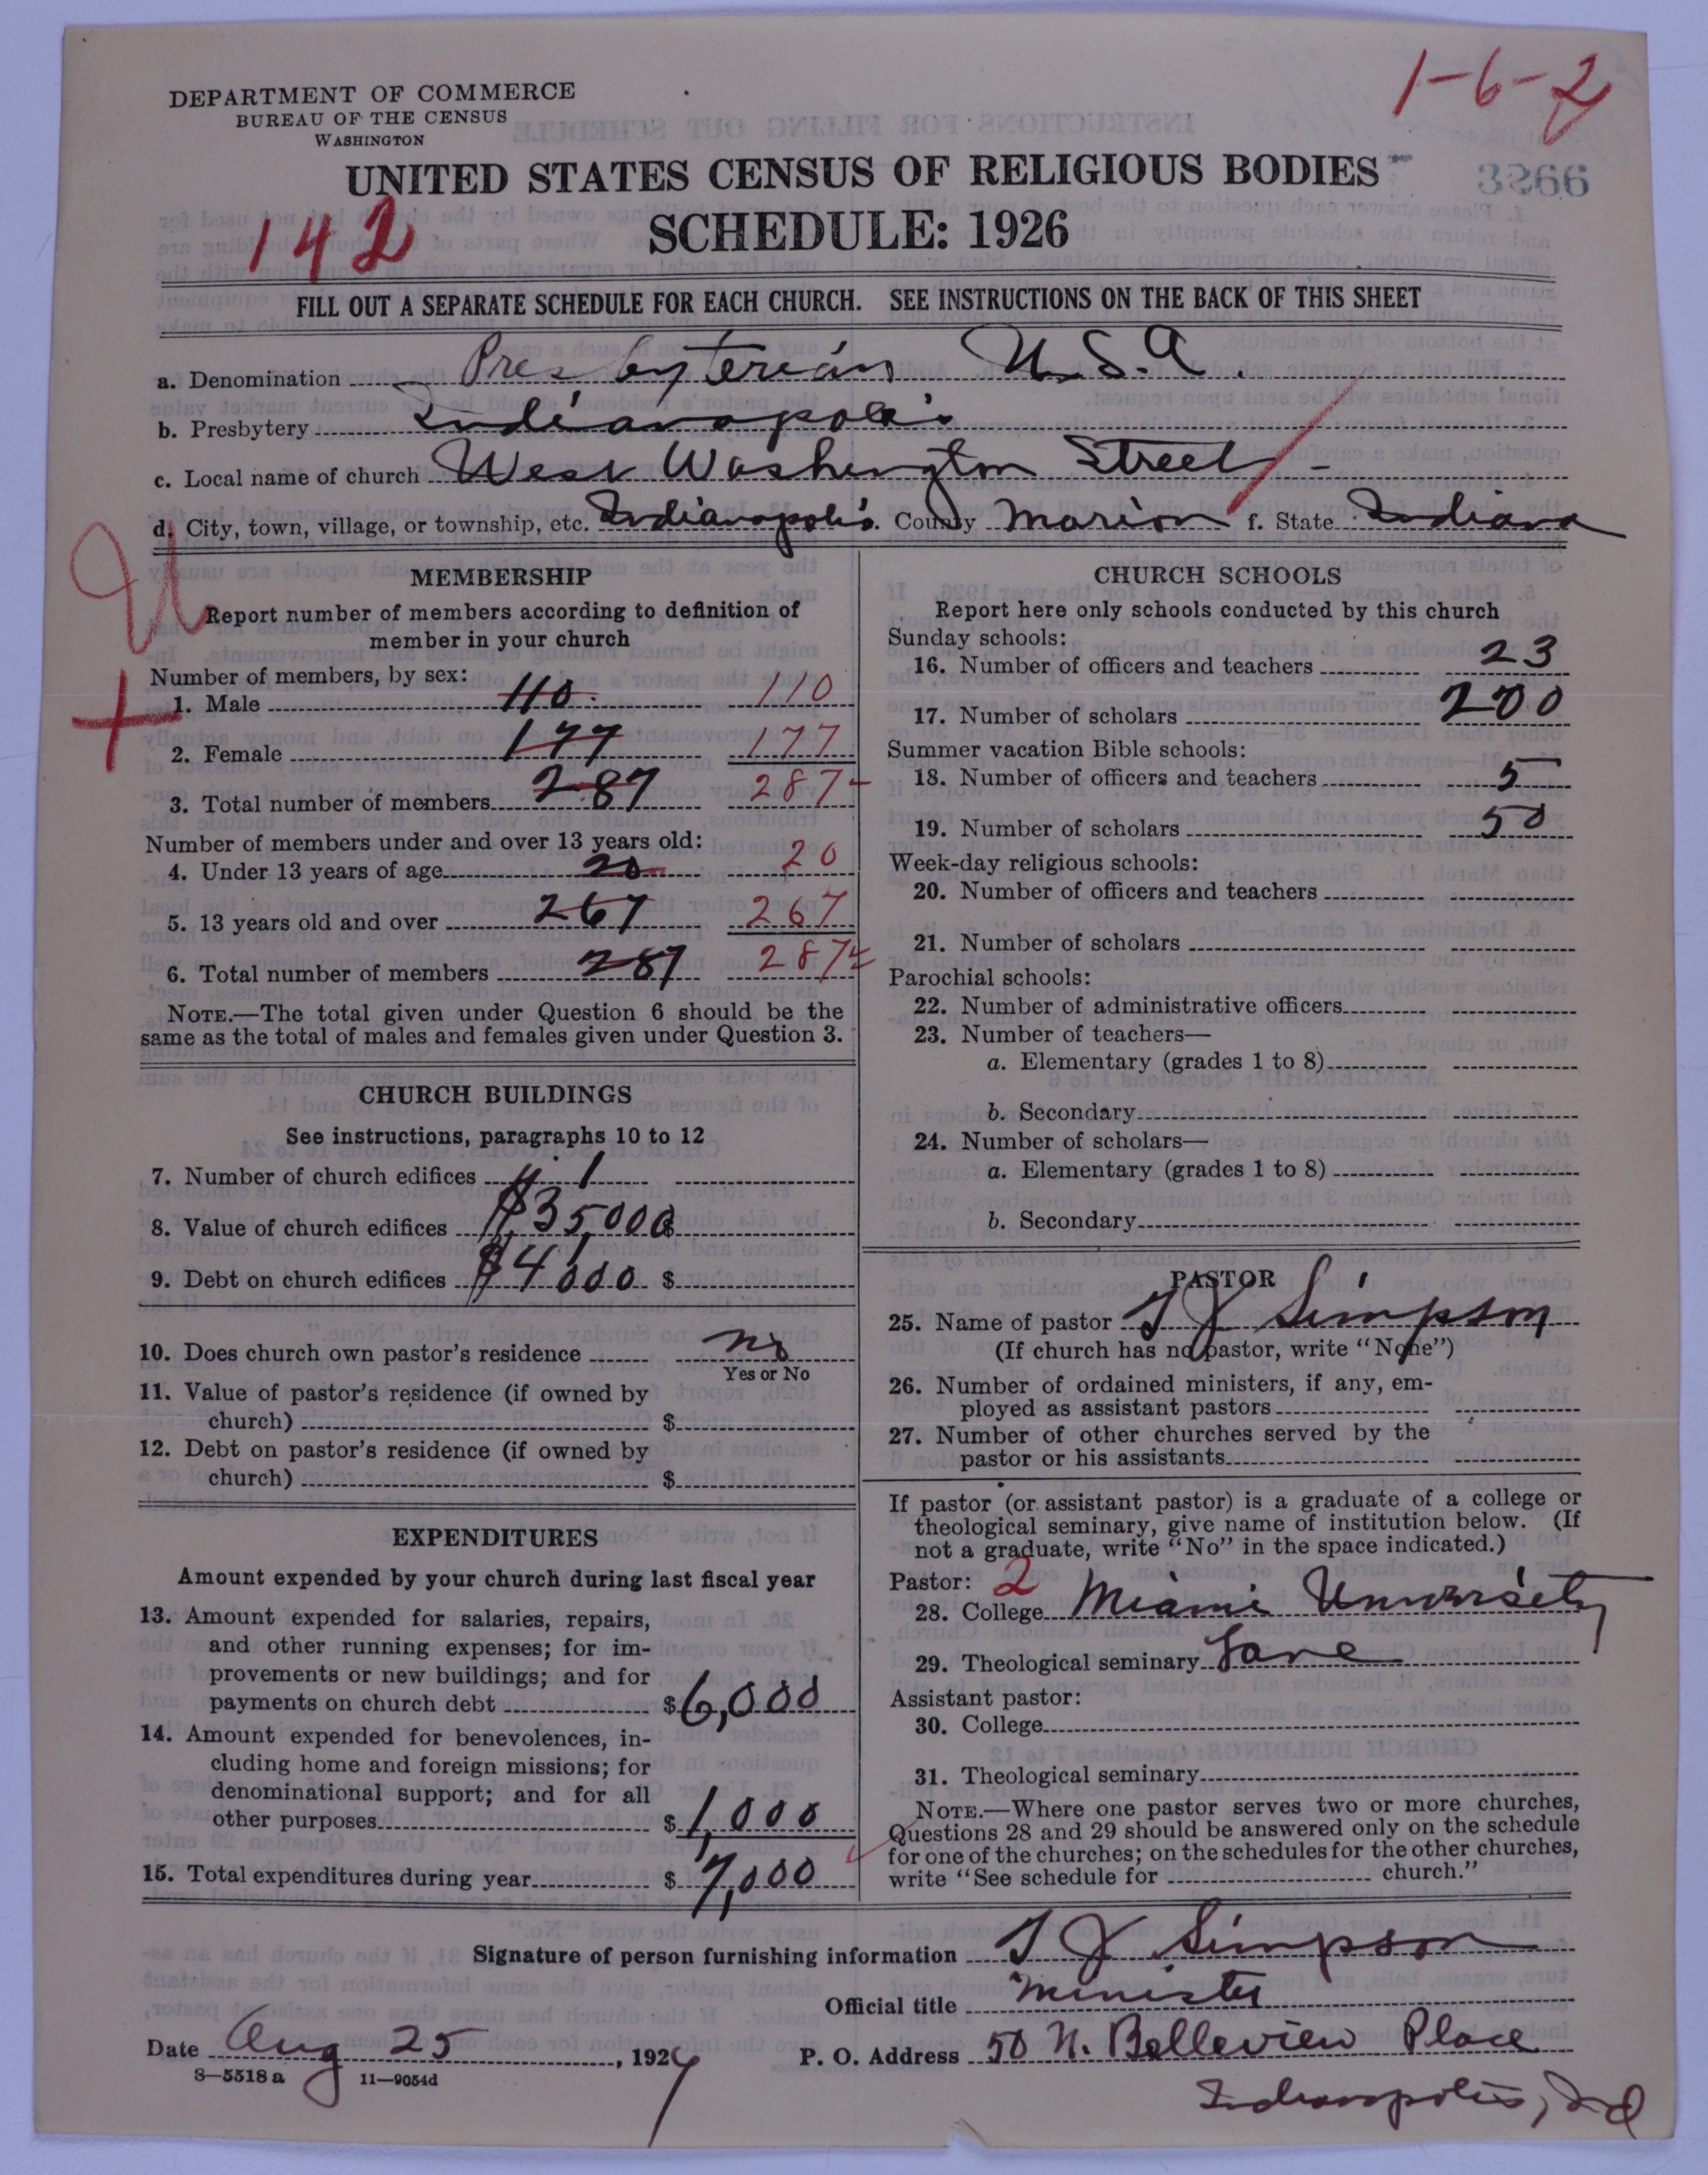 1-6-2
DEPARTMENT OF COMMERCE
BUREAU OF THE CENSUS
WASHINGTON
UNITED STATES CENSUS OF RELIGIOUS BODIES
3266
142
SCHEDULE: 1926
FILL OUT A SEPARATE SCHEDULE FOR EACH CHURCH. SEE INSTRUCTIONS ON THE BACK OF THIS SHEET
a. Denomination Presbyterian U.S.A.
b. Presbytery Indianapolis
c. Local name of church West Washington Street
d. City, town, village, or township, etc. Indianapolis County Marion f. State Indiana
MEMBERSHIP
Report number of members according to definition of
member in your church
Number of members, by sex:
1. Male 110 110
2. Female 177 177
3. Total number of members 287 287
Number of members under and over 13 years old:
4. Under 13 years of age 20 20
5. 13 years old and over 267 267
6. Total number of members 287 287
NOTE.—The total given under Question 6 should be the
same as the total of males and females given under Question 3.
CHURCH BUILDINGS
See instructions, paragraphs 10 to 12
7. Number of church edifices 1
8. Value of church edifices $35,000 $
9. Debt on church edifices $4,000 $
10. Does church own pastor's residence No
Yes or No
11. Value of pastor's residence (if owned by
church) $
12. Debt on pastor's residence (if owned by
church) $
EXPENDITURES
Amount expended by your church during last fiscal year
13. Amount expended for salaries, repairs,
and other running expenses; for im-
provements or new buildings; and for
payments on church debt $6,000
14. Amount expended for benevolences, in-
cluding home and foreign missions; for
denominational support; and for all
other purposes $1,000
15. Total expenditures during year $7,000
CHURCH SCHOOLS
Report here only schools conducted by this church
Sunday schools:
16. Number of officers and teachers 23
17. Number of scholars 200
Summer vacation Bible schools:
18. Number of officers and teachers 5
19. Number of scholars 50
Week-day religious schools:
20. Number of officers and teachers
21. Number of scholars
Parochial schools:
22. Number of administrative officers
23. Number of teachers—
a. Elementary (grades 1 to 8)
b. Secondary
24. Number of scholars—
a. Elementary (grades 1 to 8)
b. Secondary
PASTOR
25. Name of pastor T J Simpson
(If church has no pastor, write "None")
26. Number of ordained ministers, if any, em-
ployed as assistant pastors
27. Number of other churches served by the
pastor or his assistants
If pastor (or assistant pastor) is a graduate of a college or
theological seminary, give name of institution below. (If
not a graduate, write "No" in the space indicated.)
Pastor: 2
28. College Miami University
29. Theological seminary Lane
Assistant pastor:
30. College
31. Theological seminary
NOTE.—Where one pastor serves two or more churches,
Questions 28 and 29 should be answered only on the schedule
for one of the churches; on the schedules for the other churches,
write "See schedule for church."
Signature of person furnishing information T J Simpson
Official title Minister
Date Aug 25, 1927
P. O. Address 50 N. Belleview Place
Indianapolis, Ind
8—5518 a 11—9054d